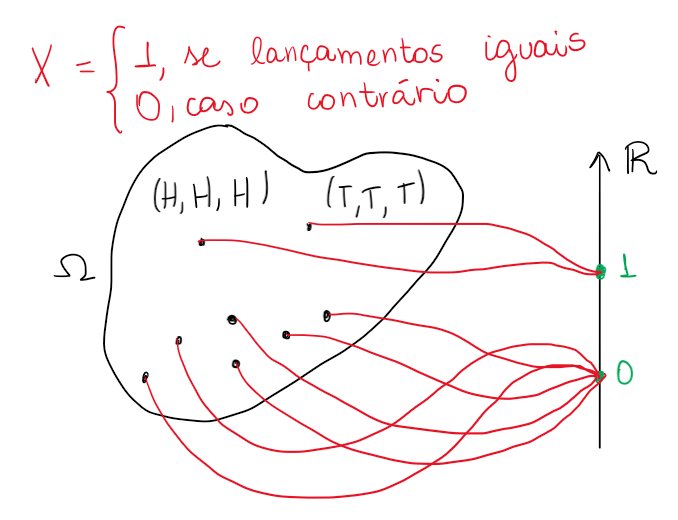 X = { 1, se lançamentos iguais
0, caso contrário
(H, H, H) (T, T, T)
ℝ
Ω
1
0